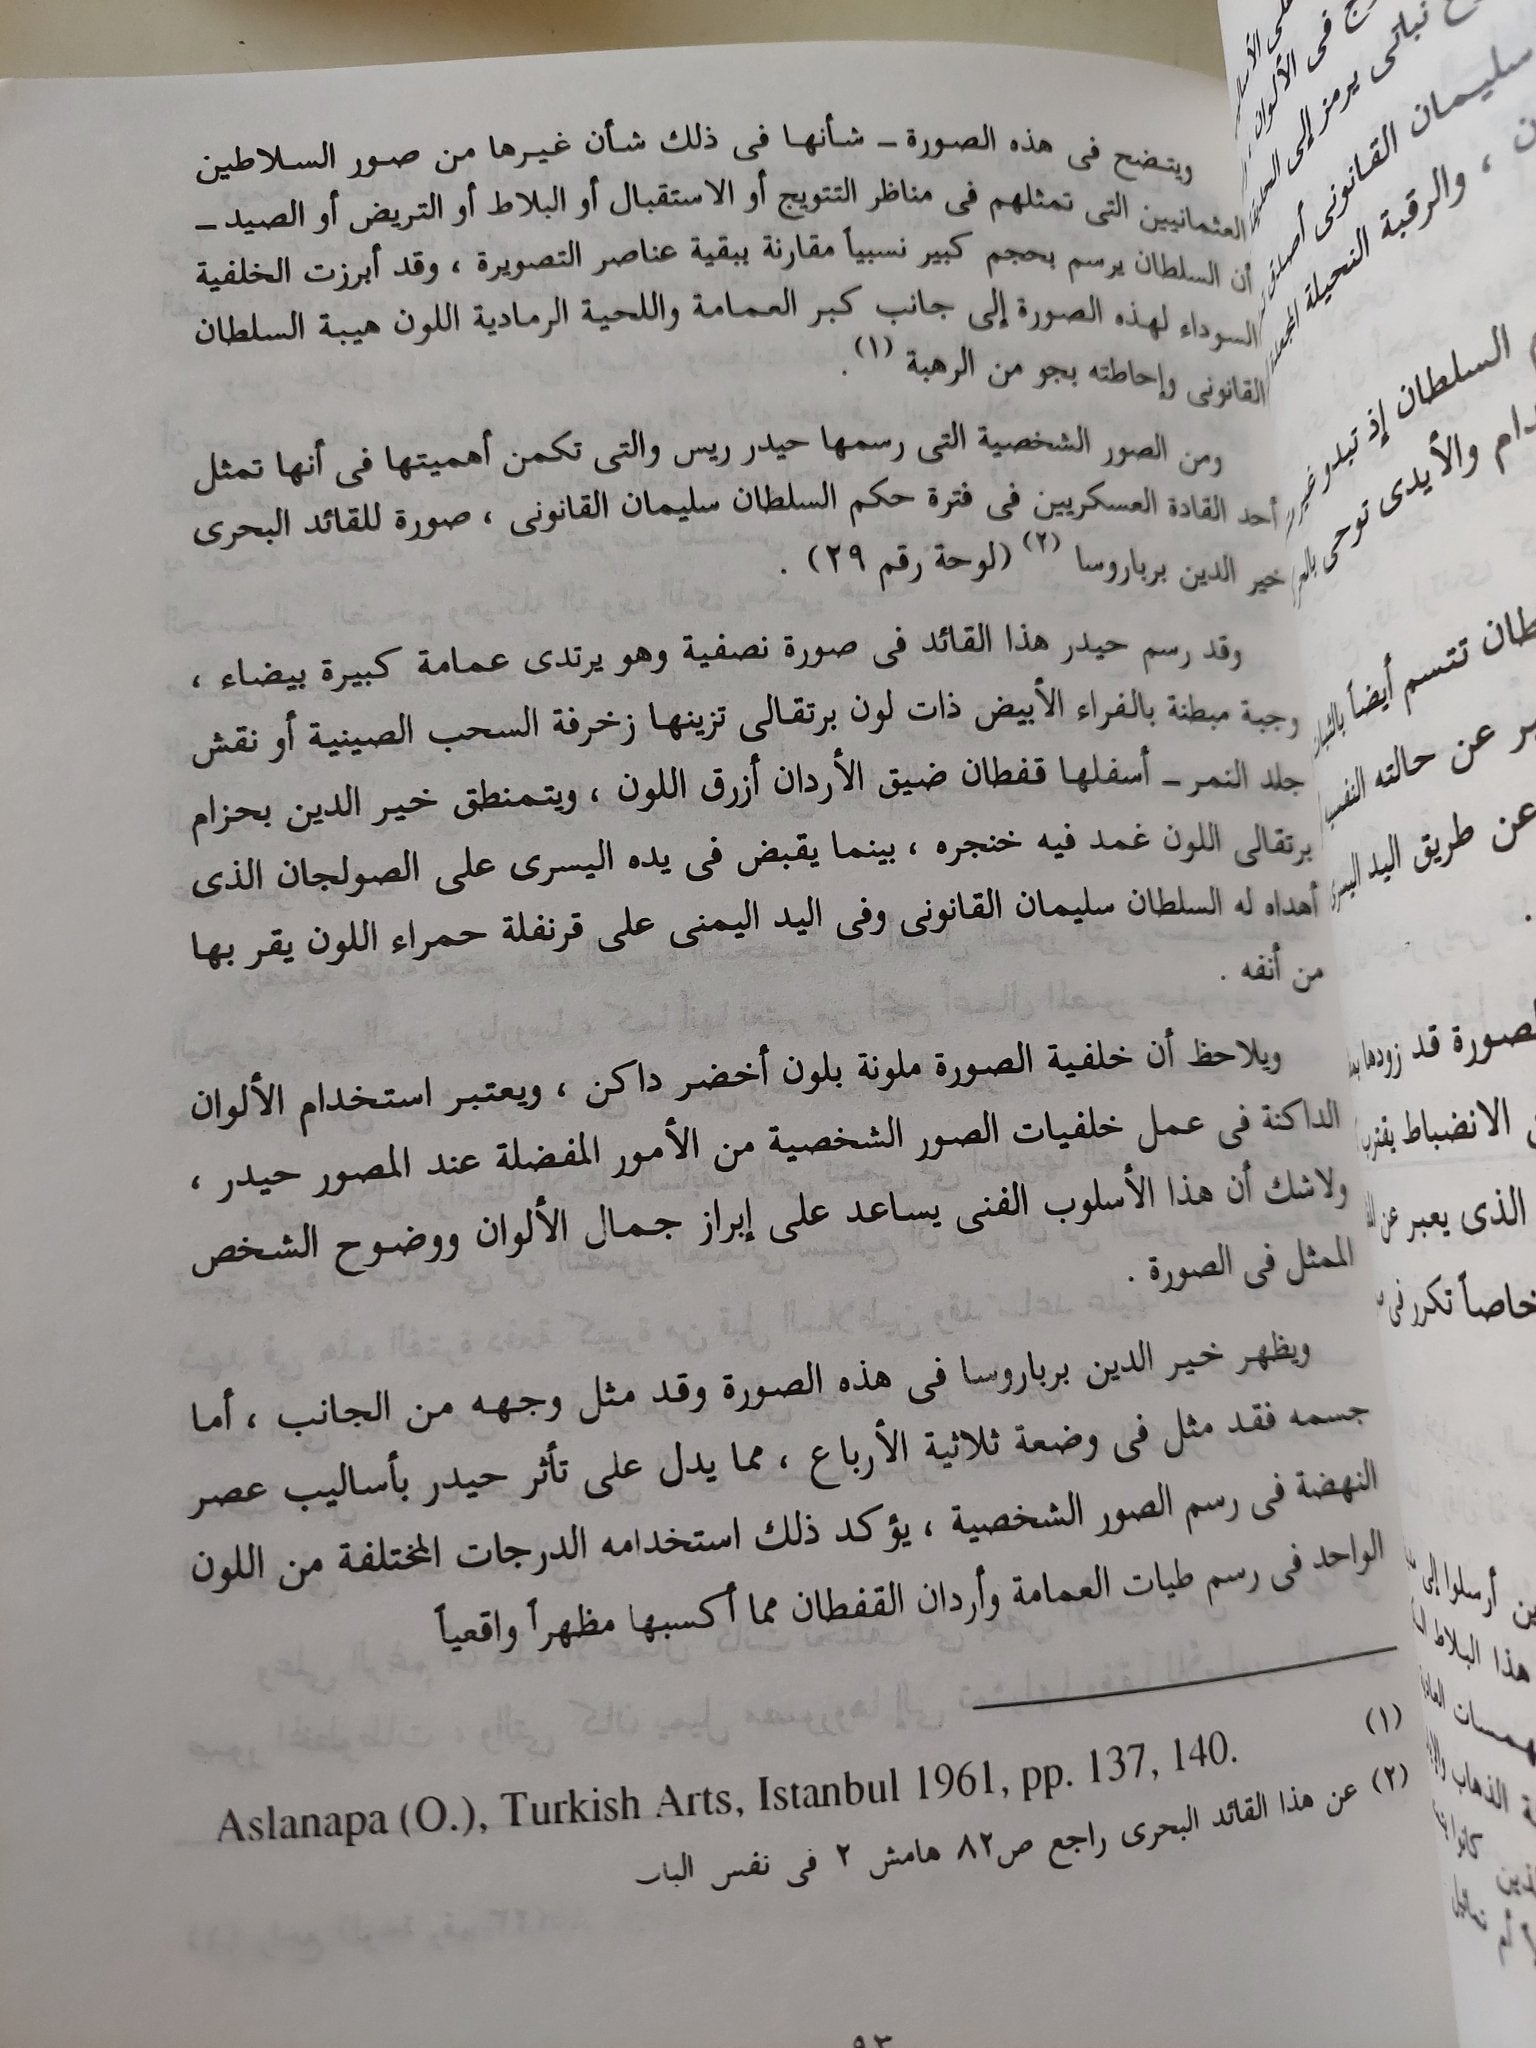 ويتضح فى هذه الصورة ــ شأنها فى ذلك شأن غيرها من صور السلاطين
العثمانيين التى تمثلهم فى مناظر التتويج أو الاستقبال أو البلاط أو التريض أو الصيد ــ
أن السلطان يرسم بحجم كبير نسبياً مقارنة ببقية عناصر التصويرة ، وقد أبرزت الخلفية
السوداء لهذه الصورة إلى جانب كبر العمامة واللحية الرمادية اللون هيبة السلطان
القانونى وإحاطته بجو من الرهبة (١) .
ومن الصور الشخصية التى رسمها حيدر ريس والتى تكمن أهميتها فى أنها تمثل
أحد القادة العسكريين فى فترة حكم السلطان سليمان القانونى ، صورة للقائد البحرى
خير الدين برباروسا (٢) (لوحة رقم ٢٩) .
وقد رسم حيدر هذا القائد فى صورة نصفية وهو يرتدى عمامة كبيرة بيضاء ،
وجبة مبطنة بالفراء الأبيض ذات لون برتقالى تزينها زخرفة السحب الصينية أو نقش
جلد النمر ــ أسفلها قفطان ضيق الأردان أزرق اللون ، ويتمنطق خير الدين بحزام
برتقالى اللون غمد فيه خنجره ، بينما يقبض فى يده اليسرى على الصولجان الذى
أهداه له السلطان سليمان القانونى وفى اليد اليمنى على قرنفلة حمراء اللون يقر بها
من أنفه .
ويلاحظ أن خلفية الصورة ملونة بلون أخضر داكن ، ويعتبر استخدام الألوان
الداكنة فى عمل خلفيات الصور الشخصية من الأمور المفضلة عند المصور حيدر ،
ولاشك أن هذا الأسلوب الفنى يساعد على إبراز جمال الألوان ووضوح الشخص
الممثل فى الصورة .
ويظهر خير الدين برباروسا فى هذه الصورة وقد مثل وجهه من الجانب ، أما
جسمه فقد مثل فى وضعة ثلاثية الأرباع ، مما يدل على تأثر حيدر بأساليب عصر
النهضة فى رسم الصور الشخصية ، يؤكد ذلك استخدامه الدرجات المختلفة من اللون
الواحد فى رسم طيات العمامة وأردان القفطان مما أكسبها مظهراً واقعياً
(١)
Aslanapa (O.), Turkish Arts, Istanbul 1961, pp. 137, 140.
(٢) عن هذا القائد البحرى راجع ص٨٢ هامش ٢ فى نفس الباب
٩٣
فى الألوان
نباتى يرمز إلى
سليمان القانونى أصدق
، والرقبة النحيلة
السلطان إذ تبدو غير
والأيدى توحى
تتسم أيضاً
عن حالته
عن طريق اليد
قد زودها
الانضباط
الذى يعبر عن
خاصاً تكرر فى
أرسلوا إلى
هذا البلاط